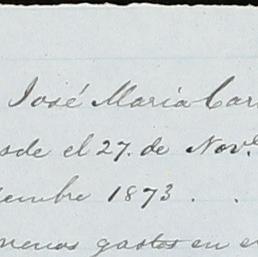 José María Car
sde el 27. de Nov.e
iembre 1873 . .
menos gastos en e